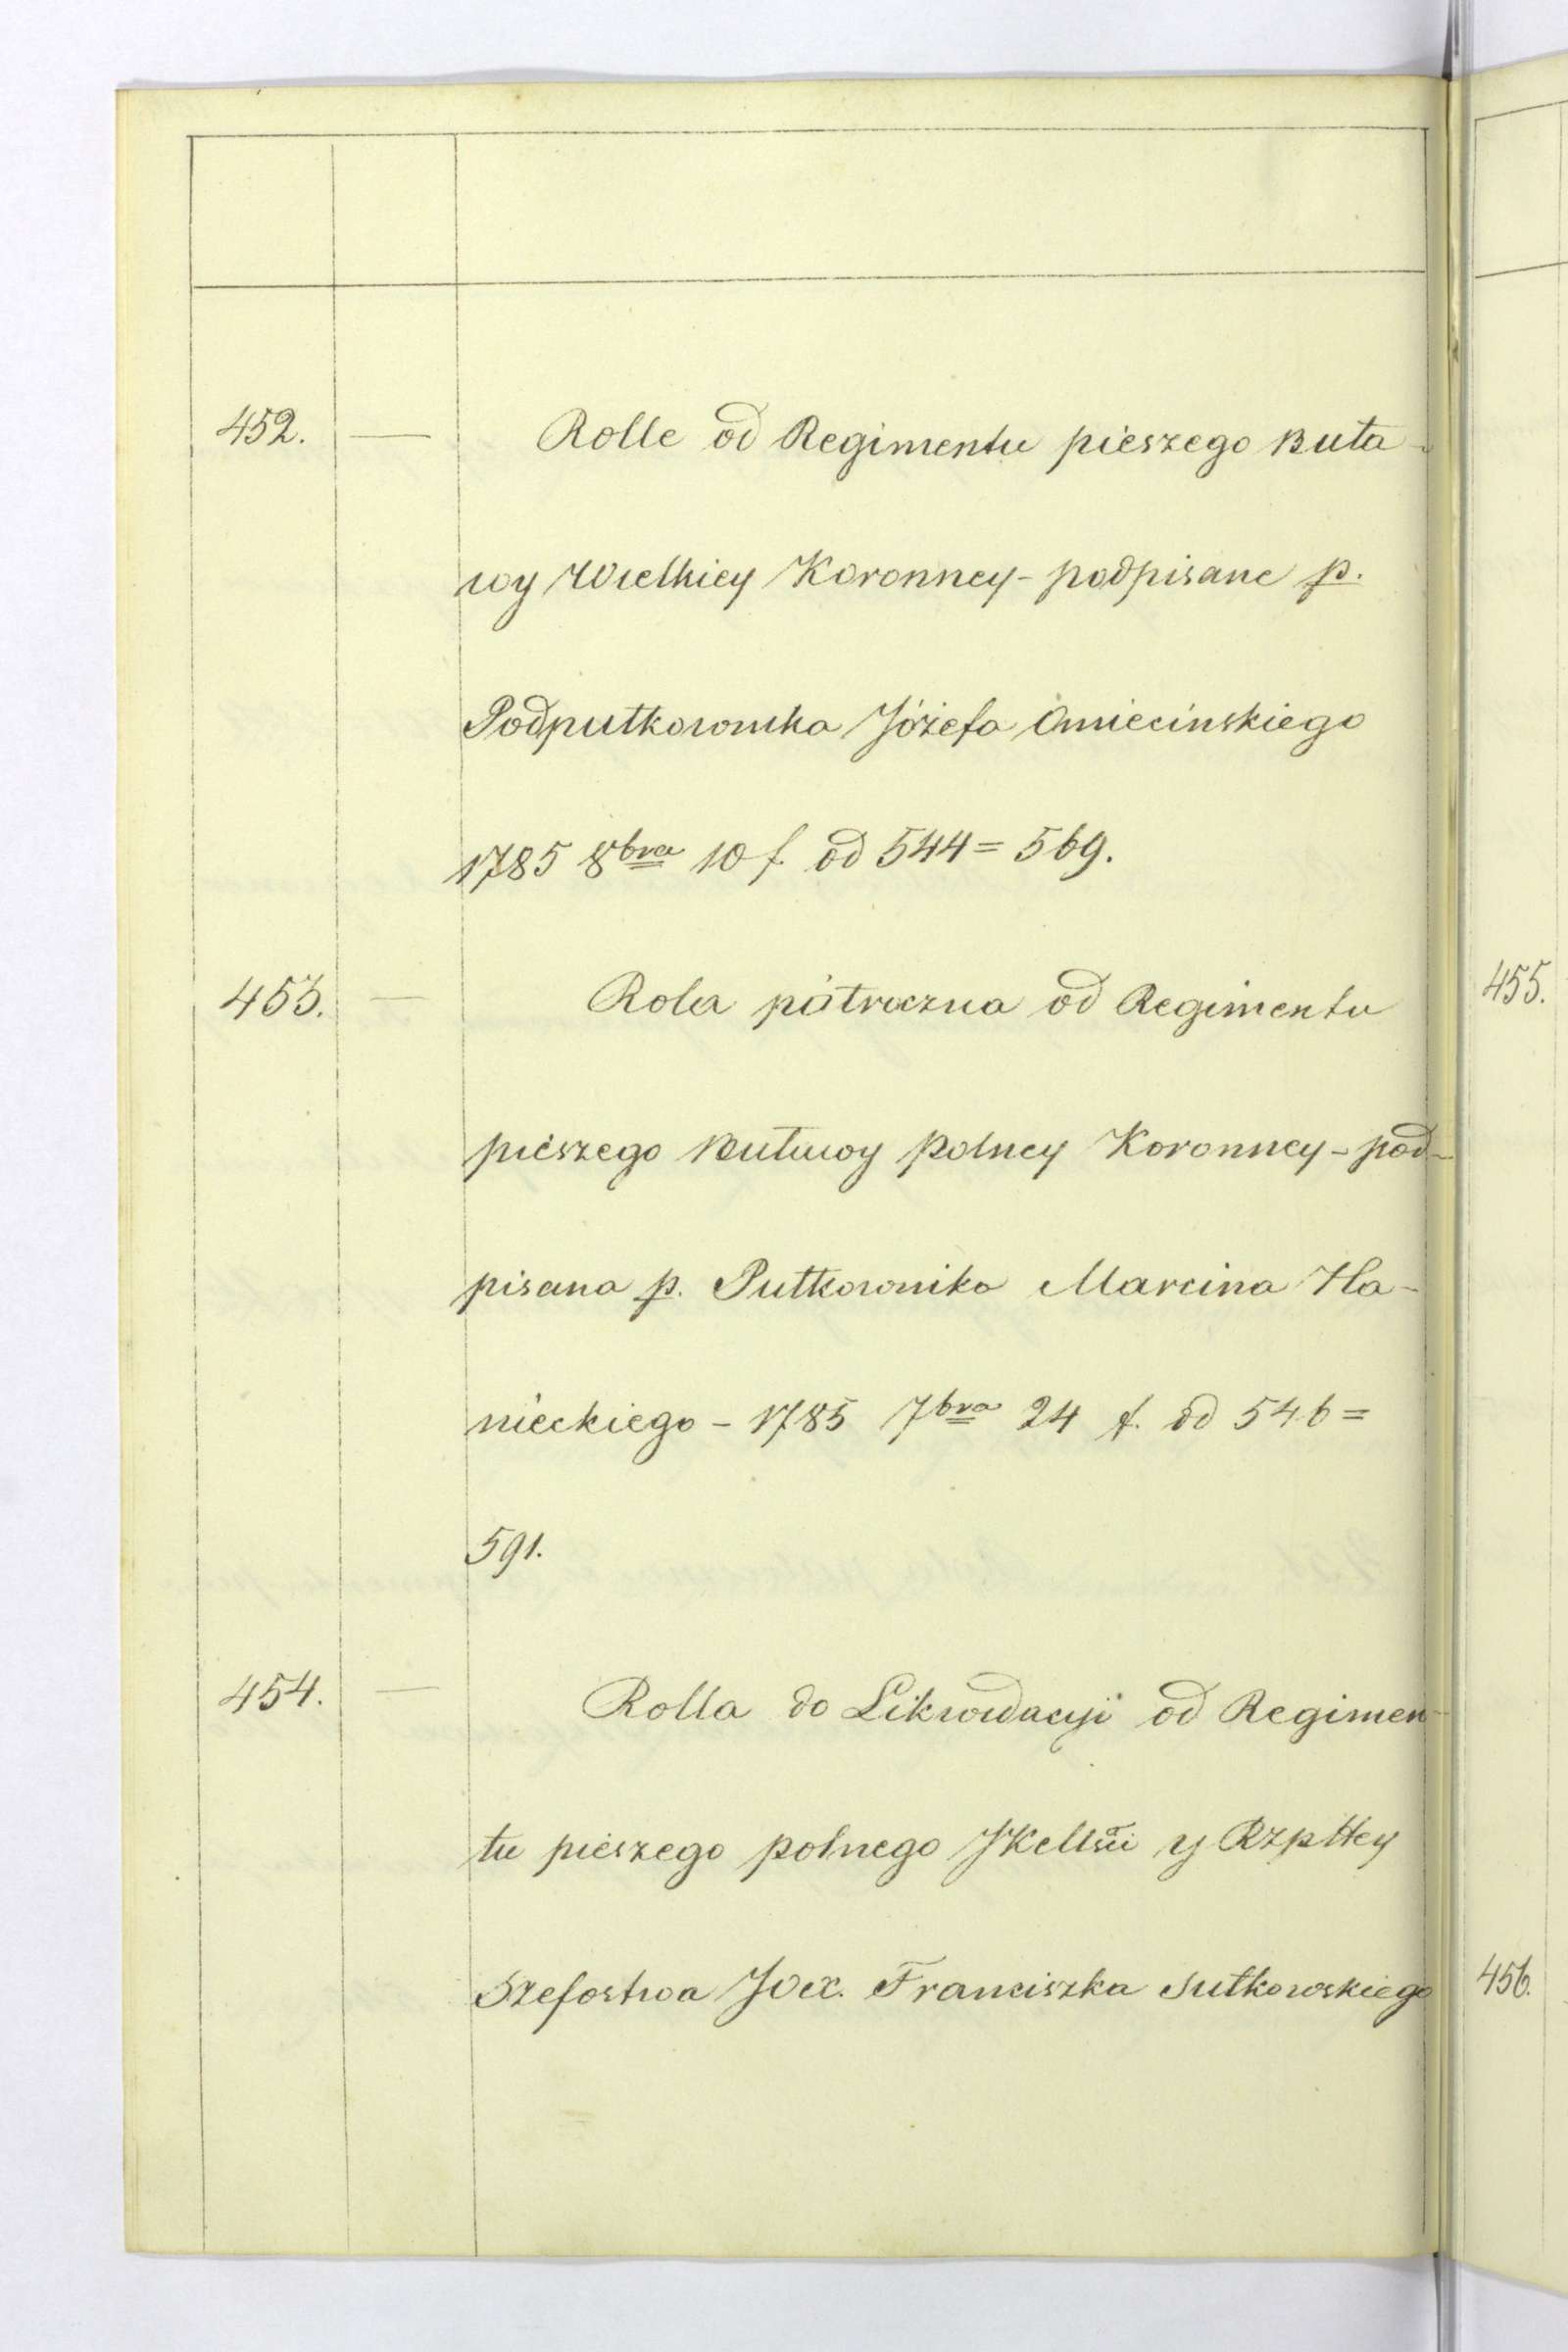 452. — Rolle od Regimentu pieszego Buła-
wy Wielkiey Koronney - podpisane p.
Podpułkownika Józefa Omiecinskiego
1785 8bra 10 f. od 544 = 569.
453. — Rola pułroczna od Regimentu
pieszego Buławy Polney Koronney - pod-
pisana p. Pułkownika Marcina Ha-
nieckiego - 1785 7bra 24 f. od 546 =
591.
454. — Rolla do Likwidacyi od Regimen-
tu pieszego polnego JKMsci y Rzpltey
Szefostwa Franciszka Sułkowskiego
455.
456.